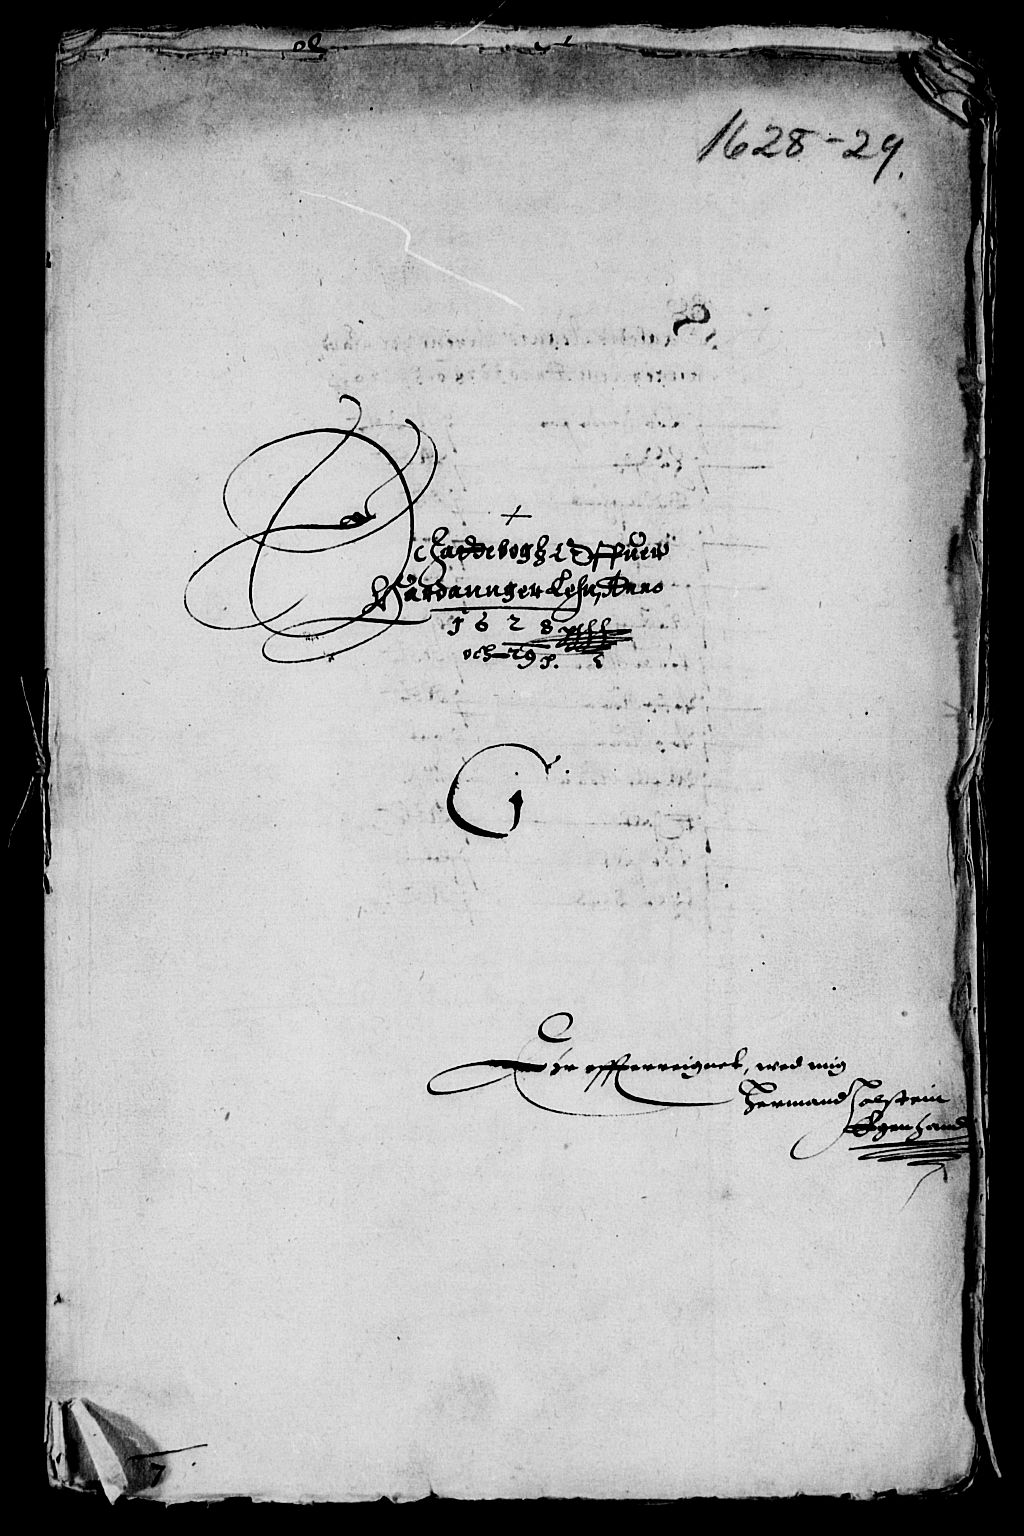 1628-29.
Jordebogh Offuer
Hardannger Lehn, Anno
1628
och 29
Er offuerreignet, med mig
Hermand Holstein
Egenhand